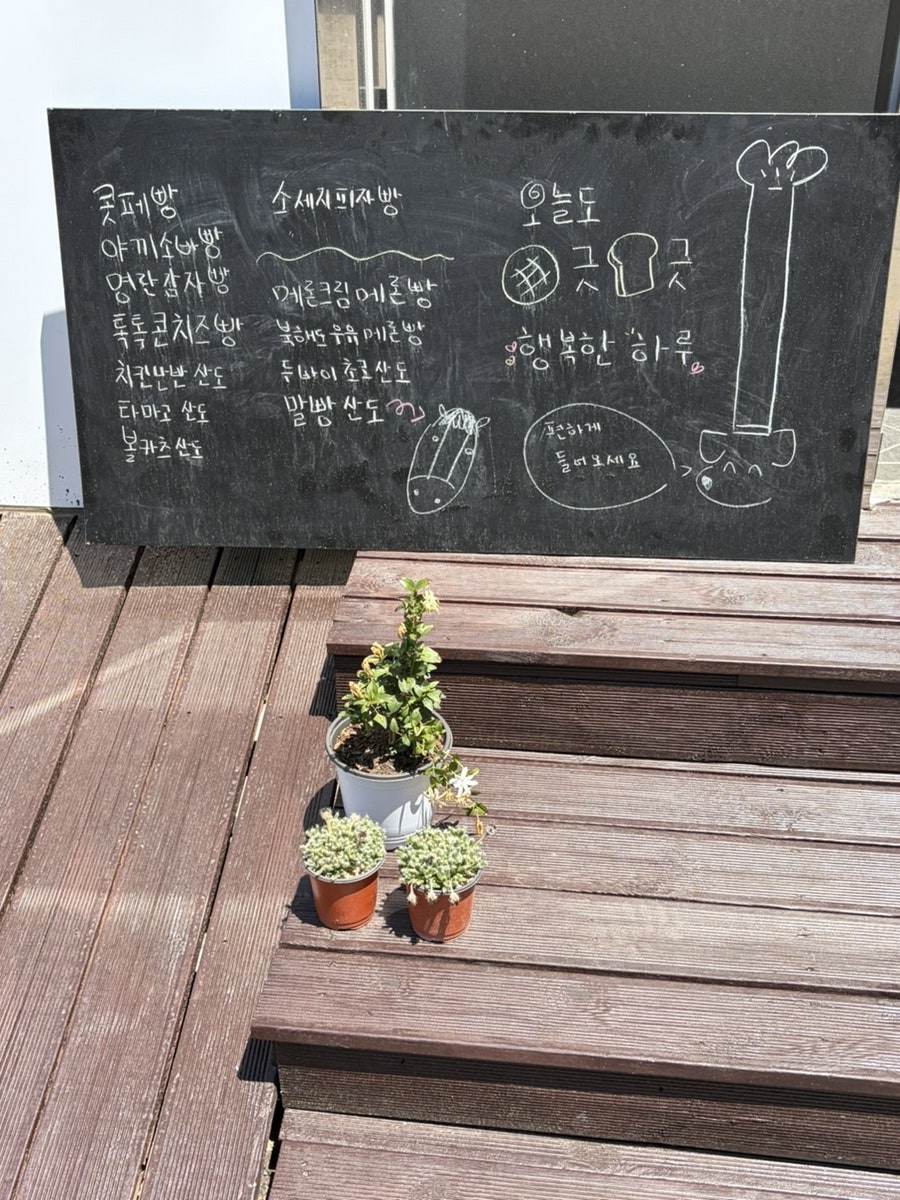 콧페빵
야끼소바빵
명란감자빵
톡톡콘치즈빵
치킨난반 산도
타마고 산도
볼카츠산도
소세지피자빵
메론크림메론빵
북해도우유메론빵
두바이초코산도
말빵산도
오늘도
긋 긋
행복한 하루
편하게
들어오세요